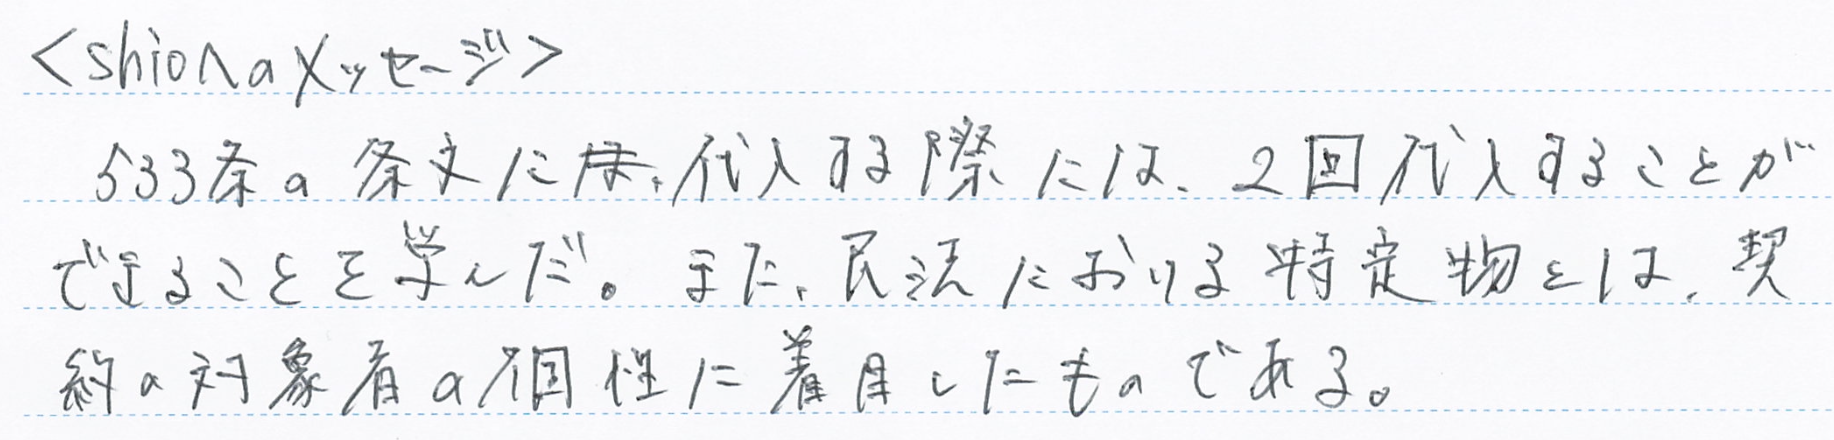 <shionのメッセージ>
533条の条文には、代入する際には、2回代入することが
できることを学んだ。また、民法における特定物とは、契
約の対象者の個性に着目したものである。